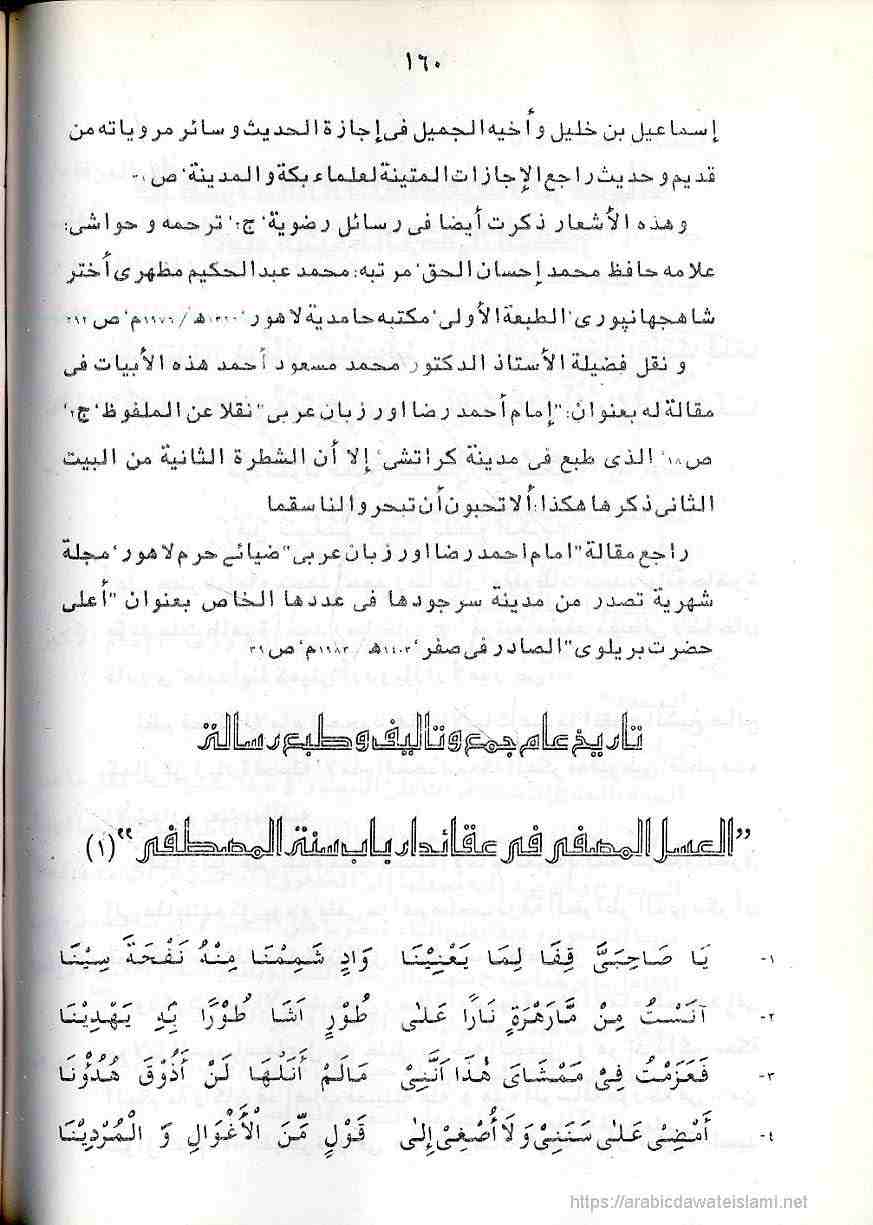 ١٦٠
إسماعيل بن خليل وأخيه الجميل فى إجازة الحديث وسائر مروياته من
قديم وحديث راجع الإجازات المتينة لعلماء بكة والمدينة‘ ص
وهذه الأشعار ذكرت أيضا فى رسائل رضوية‘ ج ترجمه و حواشى:
علامه حافظ محمد إحسان الحق‘ مرتبه: محمد عبدالحكيم مظهرى أختر
شاهجهانپورى‘ الطبعة الأولى‘ مكتبه حامدية لاهور‘ ھ/ ١٩٧٦م‘ ص
و نقل فضيلة الأستاذ الدكتور محمد مسعود أحمد هذه الأبيات فى
مقالة له بعنوان: "إمام أحمد رضا اور زبان عربى" نقلا عن الملفوظ‘ ج٢‘
ص١٨‘ الذى طبع فى مدينة كراتشى‘ إلا أن الشطرة الثانية من البيت
الثانى ذكرها هكذا: ألا تحبون أن تبحروا لناسقما
راجع مقالة "امام احمد رضا اور زبان عربى" ضيائے حرم لاهور‘ مجلة
شهرية تصدر من مدينة سرجودها فى عددها الخاص بعنوان "أعلى
حضرت بريلوى" الصادر فى صفر‘ ١٤٠٣ھ/ ١٩٨٢م‘ ص
تاريخ عام جمع وتاليف وطبع رسالة
"العسل المصفى فى عقائد ارباب سنة المصطفى" (١)
١- يَا صَاحِبَيَّ قِفَا لِمَا يَعْنِيْنَا وَادٍ شَمِمْنَا مِنْهُ نَفْحَةَ سِيْنَا
٢- آنَسْتُ مِنْ مَّارَهْرَةٍ نَارًا عَلٰى طُوْرٍ اَشَا طُوْرًا بِهٖ يَهْدِيْنَا
٣- فَعَزَمْتُ فِيْ مَمْشَايَ هٰذَا اَنَّنِيْ مَالَمْ اَنَلْهَا لَنْ أَذُوْقَ هُدُوْنَا
٤- أَمْضِيْ عَلٰى سَنَنِيْ وَلَا أُصْغِيْ إِلٰى قَوْلٍ مِّنَ الْأَغْوَالِ وَ الْمُرْدِيْنَا
https://arabicdawateislami.net